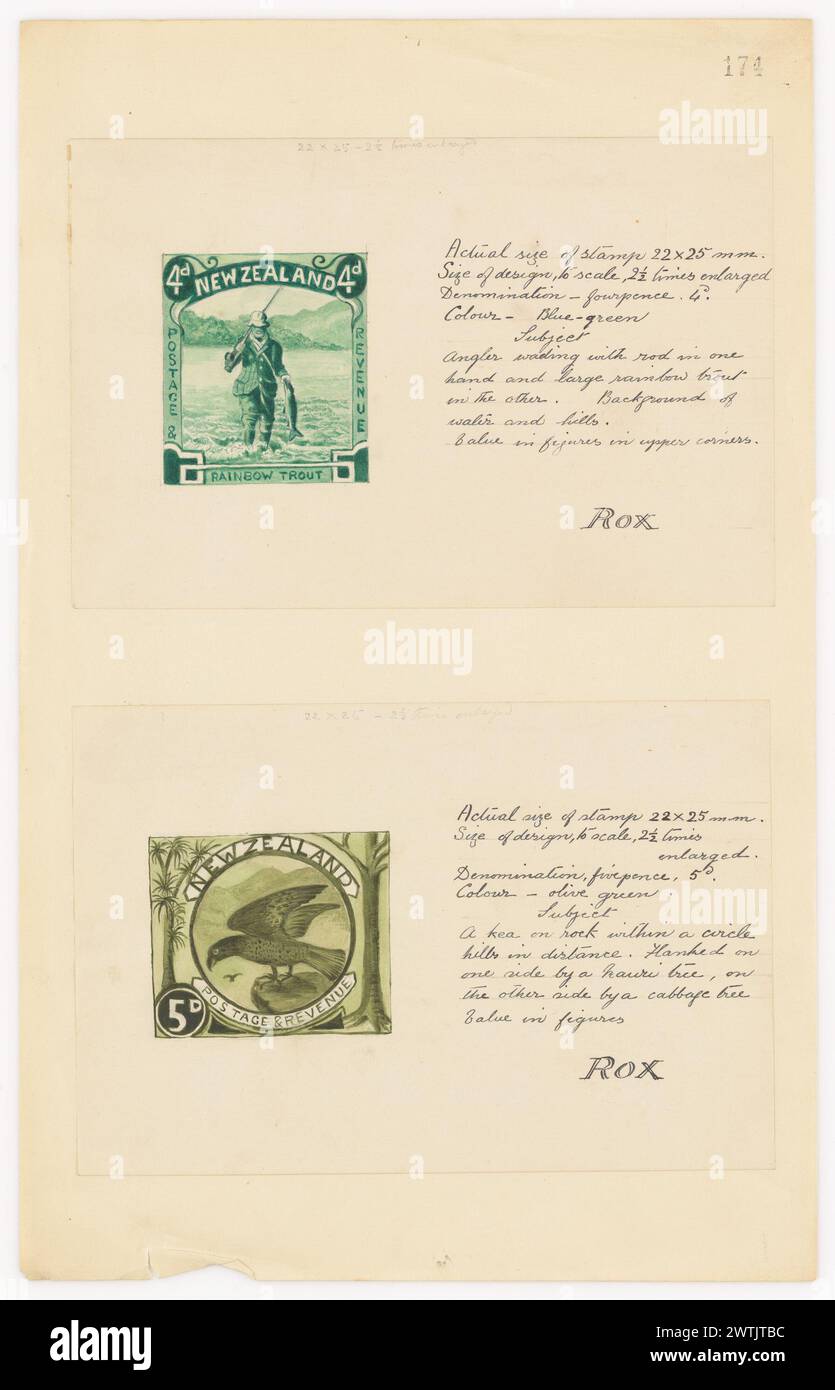 174
22 x 25 - 2½ times enlarged
4d NEW ZEALAND 4d
POSTAGE &
REVENUE
RAINBOW TROUT
Actual size of stamp 22 x 25 mm.
Size of design, to scale, 2½ times enlarged
Denomination - fourpence. 4d.
Colour - Blue-green
Subject
Angler wading with rod in one
hand and large rainbow trout
in the other. Background of
water and hills.
Value in figures in upper corners.
ROX
alamy
22 x 25 - 2½ times enlarged
NEW ZEALAND
5D
POSTAGE & REVENUE
Actual size of stamp 22 x 25 mm.
Size of design, to scale, 2½ times
enlarged.
Denomination, fivepence, 5d.
Colour - olive green.
Subject
A kea on rock within a circle
hills in distance. Flanked on
one side by a kauri tree, on
the other side by a cabbage tree
Value in figures
ROX
alamy
Image ID: 2WTJTBC
www.alamy.com